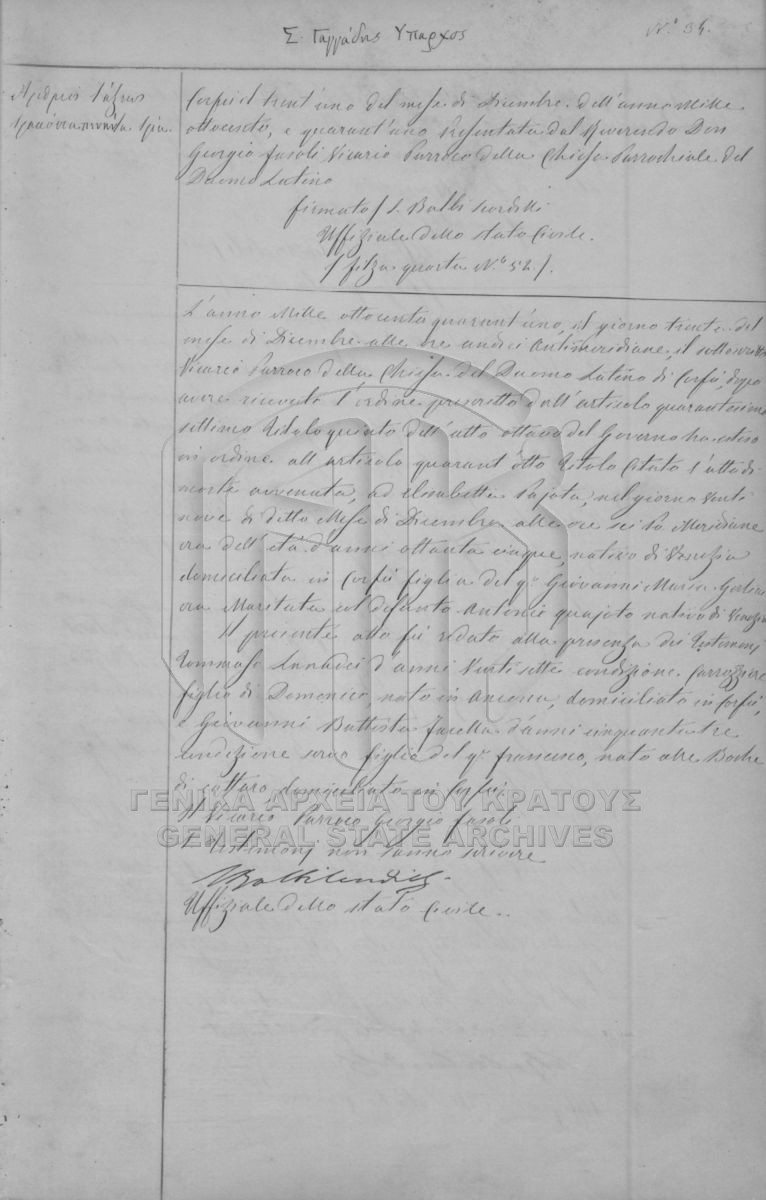 Σ. Γαγγάδης Υπαρχος
N.° 34.
Αριθμός τάξεως
τριακόσια πενήντα τρία.
Corfù il trent'uno del mese di Dicembre dell'anno Mille
ottocento, e quarant'uno Presentata dal Reverendo Don
Georgio Fasoli Vicario Parroco della Chiesa Parrochiale del
Duomo Latino
firmato / S. Balbi
Uffiziale dello stato Civile.
/ filza quarta N.° 52 /.
L'anno Mille ottocento quarant'uno, il giorno trenta del
mese di Dicembre alle ore undici Antimeridiane, il sottoscritto
Vicario Parroco della Chiesa del Duomo Latino di Corfù, dopo
avere ricevuto l'ordine prescritto dall'articolo quarantesimo
settimo titolo quinto dell'atto ottavo del Governo ha esteso
in ordine all'articolo quarant'otto titolo Citato l'atto di
morte avvenuta, ad Elisabetta Pajota, nel giorno Venti
nove di ditto Mese di Dicembre alle ore sei Po Meridiane
era dell'età d'anni ottanta cinque, nativo di Venezia
domiciliata in Corfù figlia del q.m Giovanni Maria
era Maritata col defunto Antonio quajoto nativo di Venezia
Il presente atto fù redato alla presenza dei Testimonj
Tommaso d'anni Ventisette condizione Carrozziere
figlio di Domenico, nato in Ancona, domiciliato in Corfù,
e Giovanni Battista d'anni cinquantatre
condizione servo figlio del q.m Francesco, nato alle Boche
di Cattaro domiciliato in Corfù.
Il Vicario Parroco Georgio Fasoli
I Testimonj non sanno scrivere
Uffiziale dello stato Civile..
ΓΕΝΙΚΑ ΑΡΧΕΙΑ ΤΟΥ ΚΡΑΤΟΥΣ
GENERAL STATE ARCHIVES